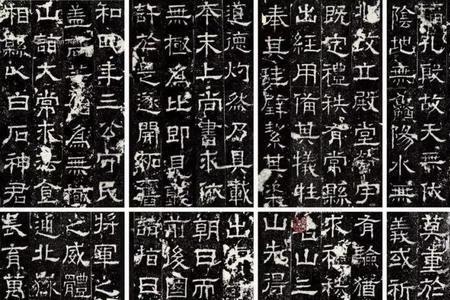 福孔殷故天無
陰地無鱻陽水無
兆改立殿堂營宇
既定禮秩有常縣
出經用備其犧牲
奉其珪璧絜其粢
道德灼然乃具載
本末上尚書求依
無極為比即見聽
許於是遂開拓舊
和四年三公守民
蓋高等始為無極
山詣大常求法食
相縣以白石神君
莫重於
義或祈
有驗猶
求禮秩
名山三
山先得
出
朝日而
前後國
請指日
將軍之
之威體
通北嶽
長育萬